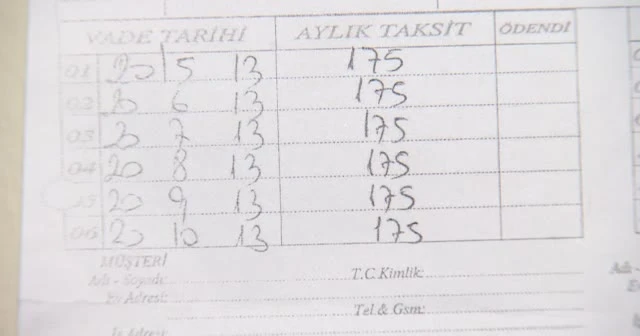 VADE TARİHİ AYLIK TAKSİT ÖDENDİ
01 20 5 13 175
02 20 6 13 175
03 20 7 13 175
04 20 8 13 175
05 20 9 13 175
06 20 10 13 175
MÜŞTERİ
Adı - Soyadı: T.C.Kimlik:
Ev Adresi:
Tel & Gsm:
İş Adresi